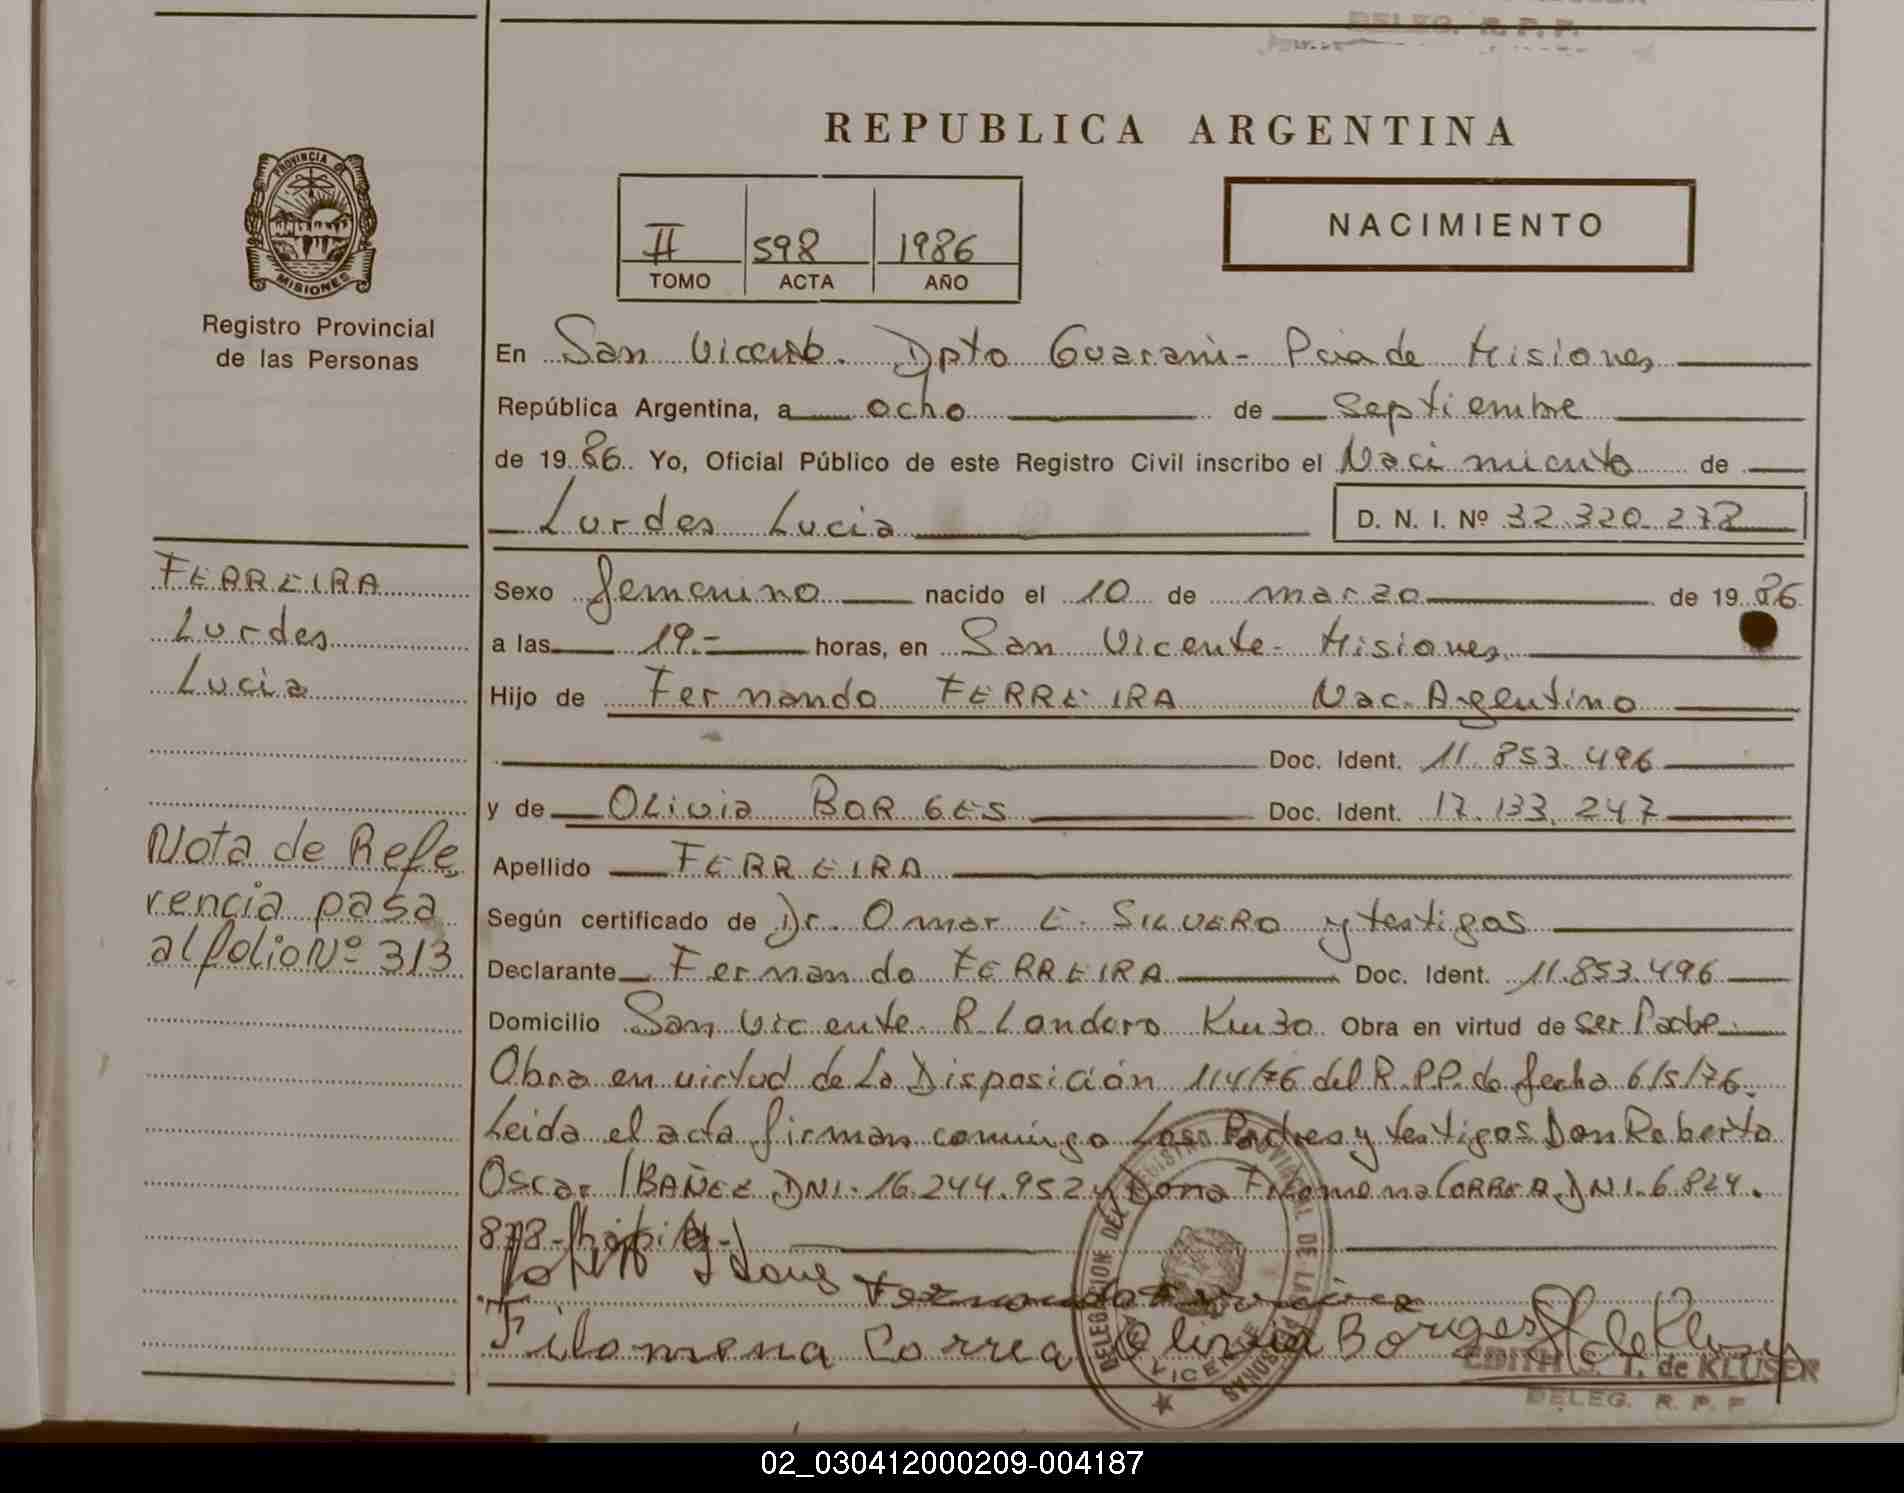 DELEG. R. P. P.
REPUBLICA ARGENTINA
PROVINCIA DE
MISIONES
Registro Provincial
de las Personas
II 598 1986
TOMO ACTA AÑO
NACIMIENTO
En San Vicente. Dpto Guarani - Pcia de Misiones
República Argentina, a ocho de septiembre
de 1986. Yo, Oficial Público de este Registro Civil inscribo el Nacimiento de
Lurdes Lucia
D. N. I. Nº 32.320.272
FERREIRA
Lurdes
Lucia
Sexo femenino nacido el 10 de marzo de 1986
a las 19.- horas, en San Vicente - Misiones
Hijo de Fernando FERREIRA Nac. Argentino
Doc. Ident. 11.853.496
y de OLivia BORGES Doc. Ident. 17.133.247
Nota de Refe
rencia pasa
al folio Nº 313
Apellido FERREIRA
Según certificado de Dr. Omar E. SILVERO y testigos
Declarante Fernando FERREIRA Doc. Ident. 11.853.496
Domicilio San Vicente R. Londero Km 30 Obra en virtud de ser Padre
Obra en virtud de La Disposición 114/76 del R.P.P. de fecha 6/5/76.
Leida el acta firman conmigo Los Padres y testigos Don Roberto
Oscar IBAÑEZ DNI. 16.244.952 y Dona Filomena CORREA DNI. 6.824.
878-
Fernando Ferreira
Filomena Correa Olivia Borges
DELEGACION DEL REGISTRO PROVINCIAL DE LAS PERSONAS
VICENTE
EDITH S. T. de KLUSER
DELEG. R. P. P
02_030412000209-004187